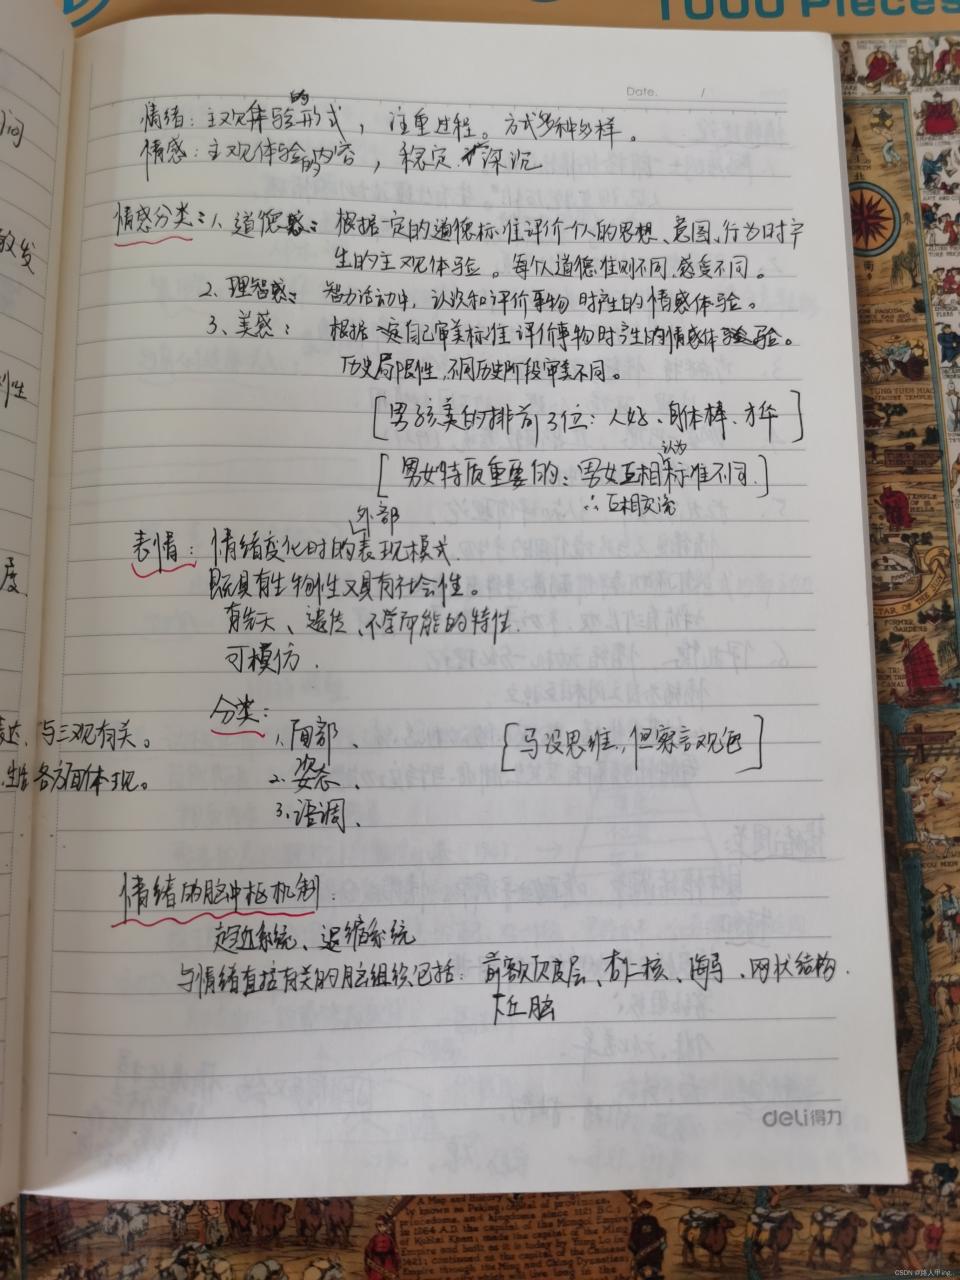 1000 Pieces
Date. /
情绪：主观体验的形式，注重过程。方式多种多样。
情感：主观体验的内容，稳定 深沉
情感分类：1、道德感：根据一定的道德标准评价个人的思想、意图、行为时产
生的主观体验。每个人道德准则不同，感受不同。
2、理智感：智力活动中，认识和评价事物时产生的情感体验。
3、美感：根据 自己审美标准评价事物时产生的情感体验。
历史局限性，不同历史阶段审美不同。
[男孩美的排前3位：人好、身体棒、才华]
[男女特质重要的：男女互相认为标准不同.]
∴互相交流
表情：情绪变化时的外部表现模式.
既具有生物性又具有社会性。
有先天、遗传、不学而能的特性.
可模仿.
分类：
1、面部、
2、姿态、
3、语调、
[马没思维，但察言观色]
与三观有关。
各方面体现。
情绪的脑中枢机制：
趋近系统、退缩系统
与情绪直接有关的脑组织包括：前额皮层、杏仁核、海马、网状结构.
下丘脑
deli得力
CSDN @路人甲ing..